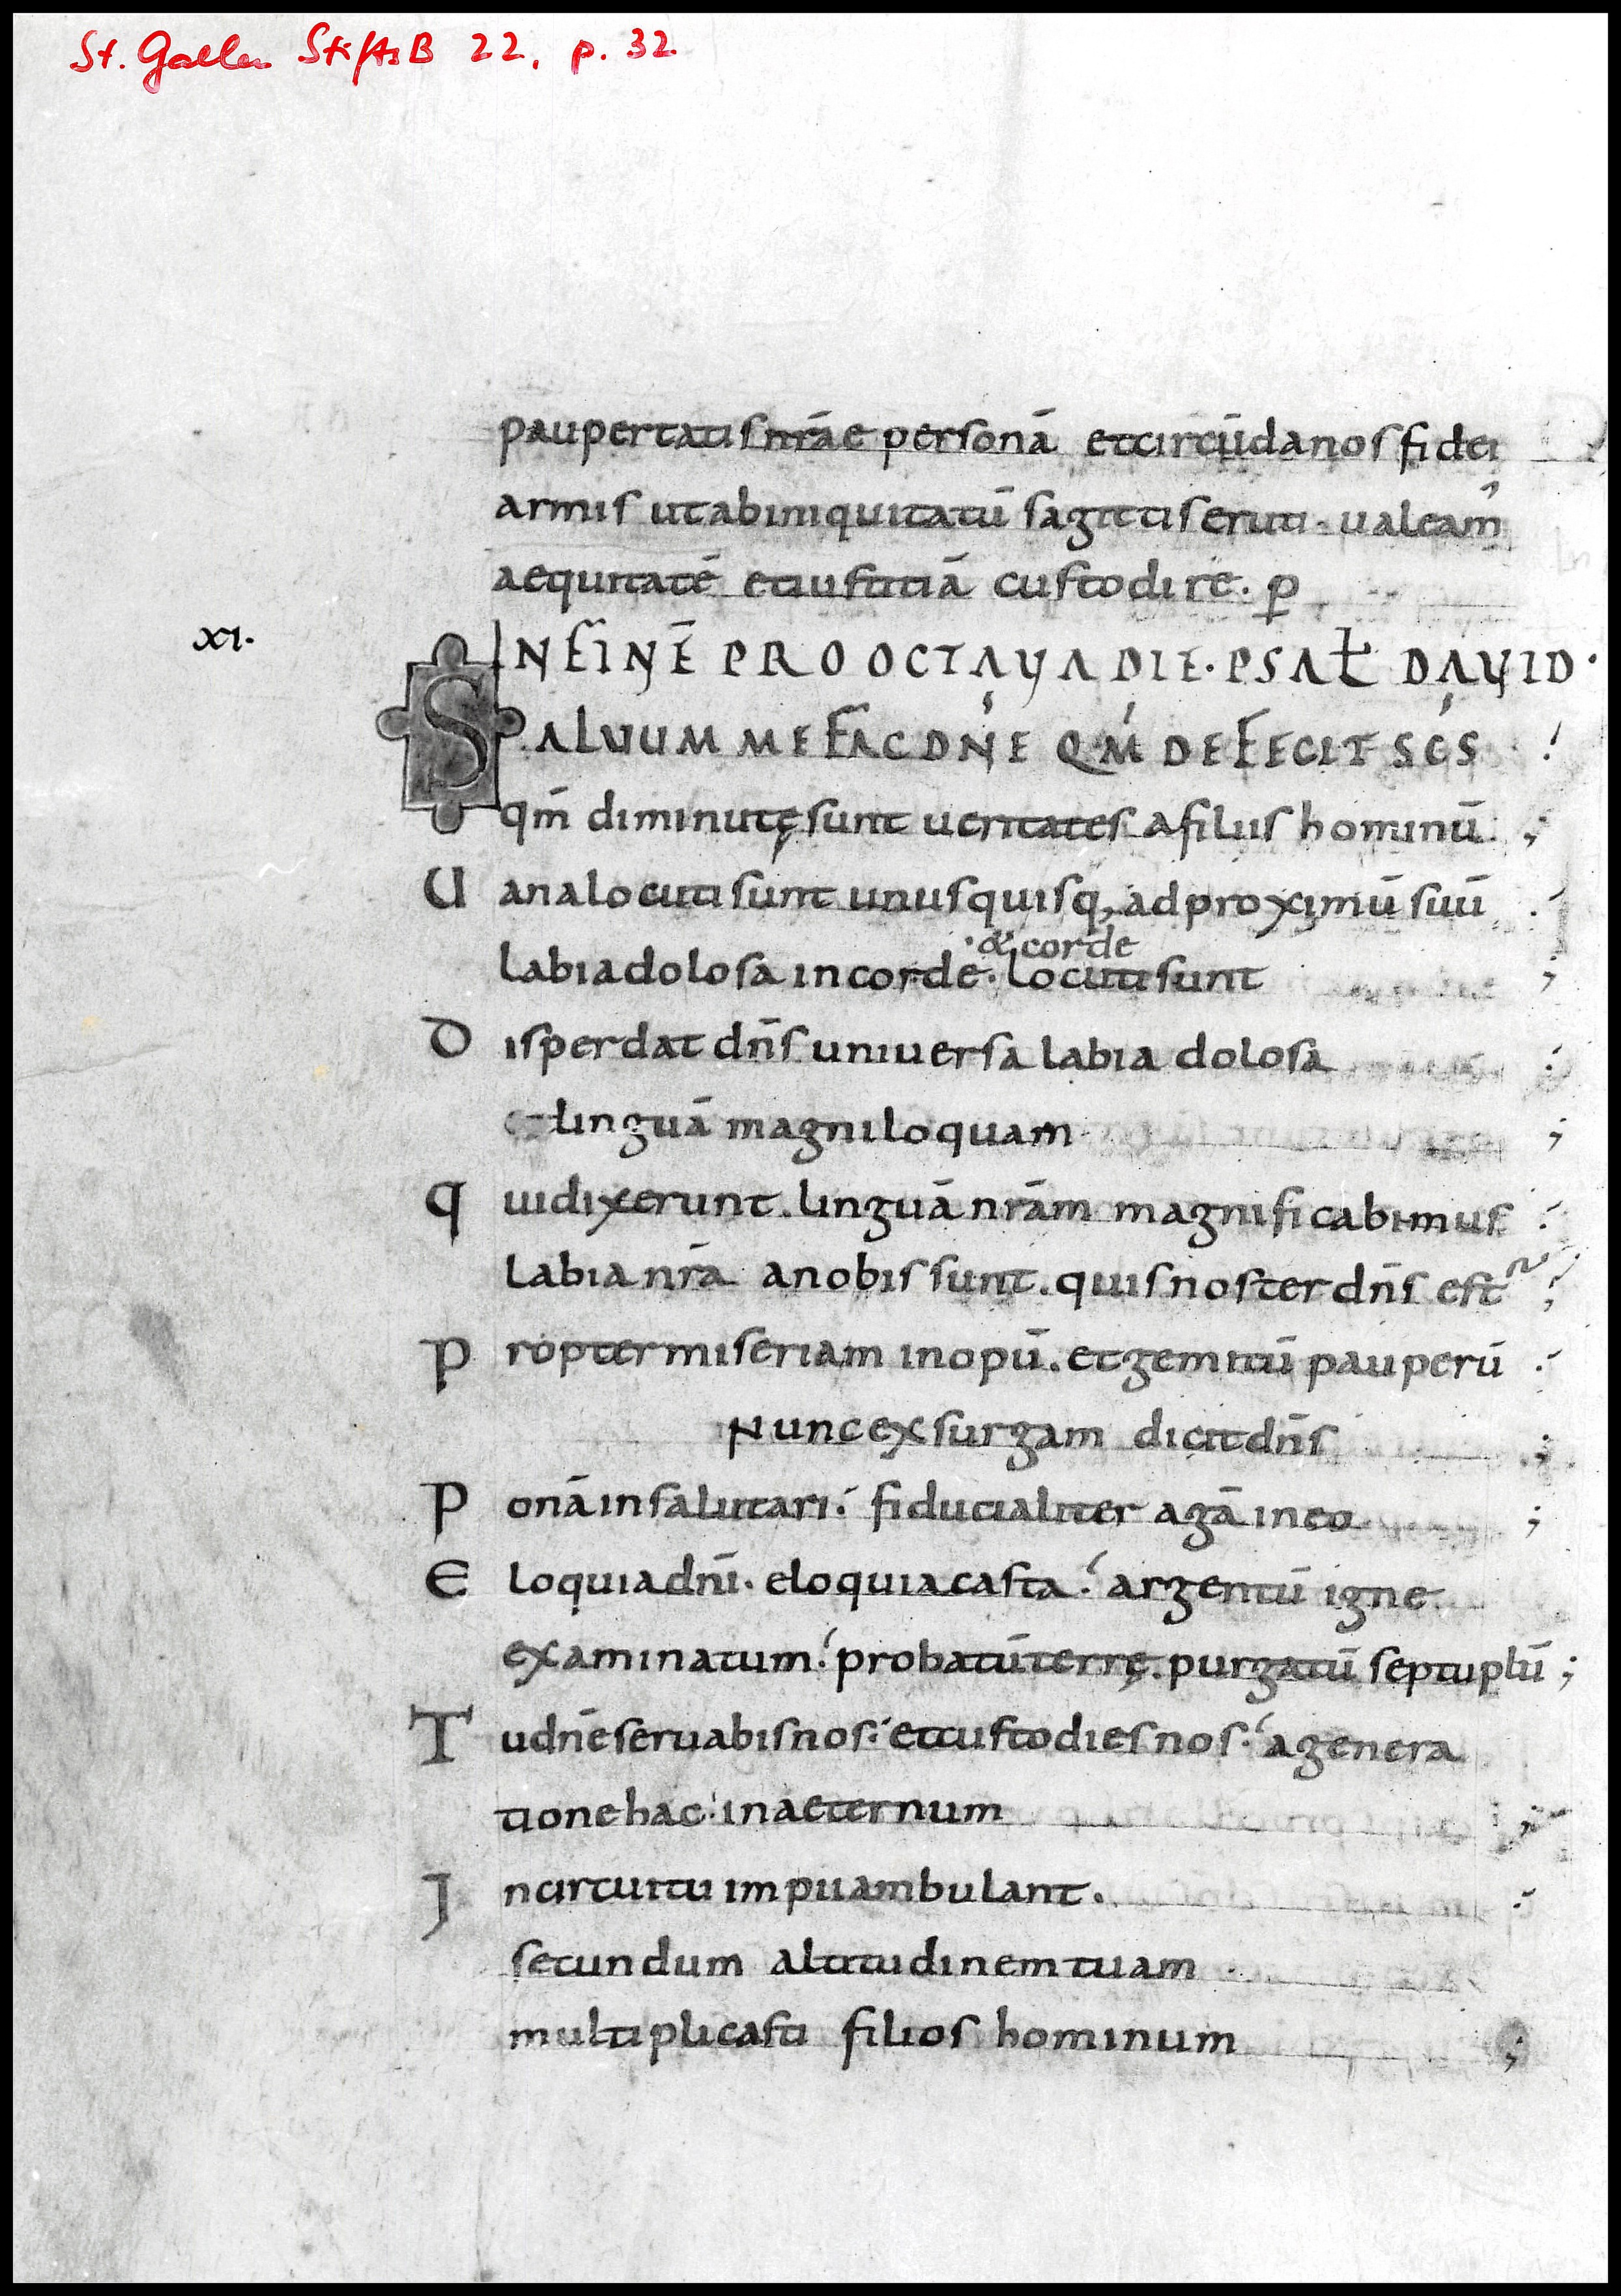 St. Gallen StiftsB 22, p. 32
paupertatis nr̄ae personā et circūda nos fidei
armis ut ab iniquitatū sagittis eruti · ualeam̾
aequitatē et iustitiā custodire. p̱
XI.
IN FINĒ PRO OCTAVA DIE · PSAŁ DAVID ·
SALUUM ME FAC DN̄E QM̄ DEFECIT SC̄S
qm̄ diminutę sunt ueritates a filiis hominū ;
Uana locuti sunt unusquisq, ad proximū suū
& corde
labia dolosa in corde · locuti sunt ;
Disperdat dn̄s uniuersa labia dolosa :
et linguā magniloquam ;
Qui dixerunt . linguā nr̄am magnificabimus
labia nr̄a a nobis sunt . quis noster dn̄s est ;
Propter miseriam inopū . et gemitū pauperū
Nunc exsurgam dicit dn̄s ;
Ponā in salutari : fiducialiter agā in eo ;
Eloquia dn̄i · eloquia casta : argentū igne
examinatum : probatū terrę . purgatū septuplū ;
Tu dn̄e seruabis nos : et custodies nos : a genera
tione hac · in aeternum ;
In circuitu impii ambulant .
secundum altitudinem tuam .
multiplicasti filios hominum ;